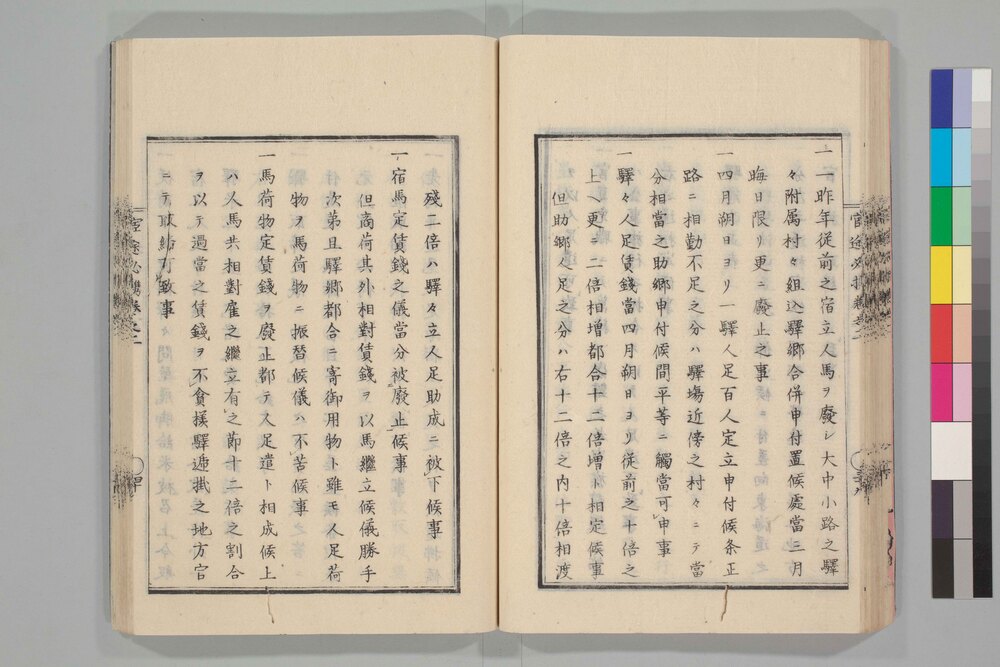 一昨年従前之宿立人馬ヲ廢シ大中小路之驛
々附属村々組込驛郷合併申付置候處當三月
晦日限リ更ニ廢止之事
一四月朔日ヨリ一驛人足百人定立申付候条正
路ニ相勤不足之分ハ驛塲近傍之村々ニテ當
分相當之助郷申付候間平等ニ觸當可申事
一驛々人足賃錢當四月朔日ヨリ従前之十倍之
上ヘ更ニ二倍相増都合十二倍増ト相定候事
但助郷人足之分ハ右十二倍之内十倍相渡
殘二倍ハ驛々立人足助成ニ被下候事
一宿馬定賃錢之儀當分被廢止候事
但商荷其外相對賃錢ヲ以馬繼立候儀勝手
次第且驛郷都合ニ寄御用物ト雖モ人足荷
物ヲ馬荷物ニ振替候儀ハ不苦候事
一馬荷物定賃錢ヲ廢止都テ人足遣ト相成候上
ハ人馬共相對雇之繼立有之節十二倍之割合
ヲ以テ過當之賃錢ヲ不貪様驛逓掛之地方官
ニテ取締可致事